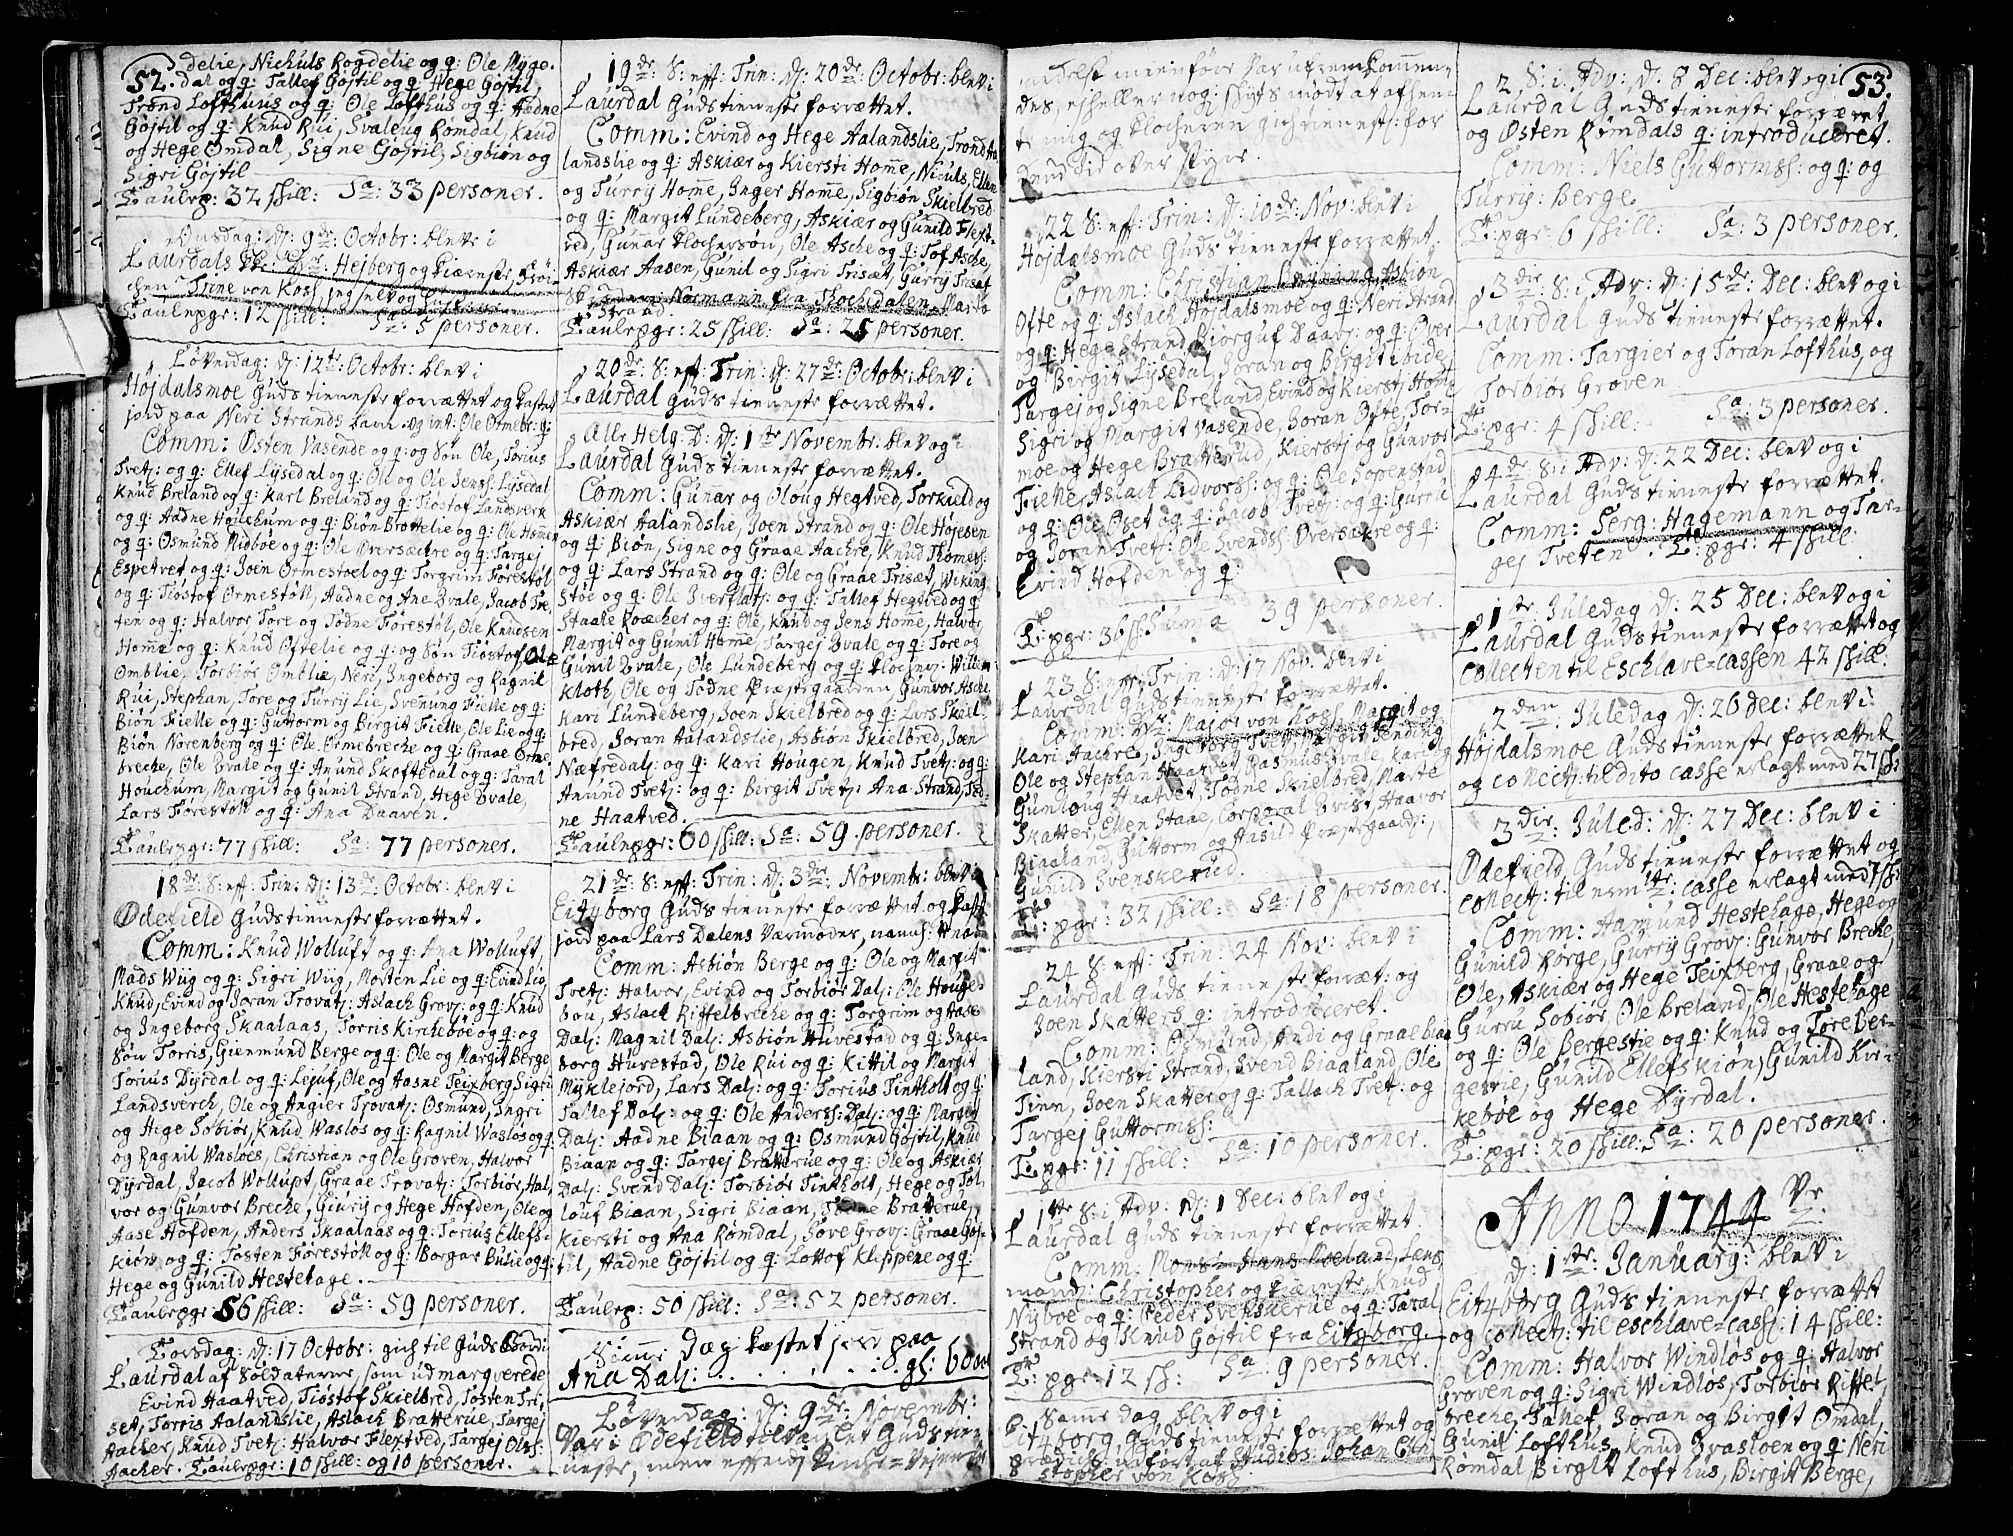 52. delie, Nichuls Rogdelie og q: Ole Nyge-
dal og q: Tallef Gøjtil og q: Hege Gøjtil,
Trond Lofthuus og q: Ole Lofthus og q: Aadne
Gøjtil og q: Knud Rui, Svaloug Rømdal, Knud
og Hege Omdal, Signe Gøjtil, Sigbiøn og
Sigri Gøjtil
Taulrp: 32 skill: Sa: 33 personer.
Onsdag: d: 9de: Octobr: blev i
Laurdals
chen Trine von Koss,
Taulrpgr: 12 skill: Sa: 5 personer.
Løverdag: d: 12te: Octobr: blev i
Højdalsmoe Guds tieneste forrættet og kastet
jord paa Neri Strands barn og int: Ole Ormebr: q:
Comm: Østen Vasende og q: og Søn Ole, Torius
Tvetj: og q: Ellef Lysedal og q: Ole og Ole Jenss: Lysedal
Knud Breland og q: Karl Breland og q: Tiostof Landsverk
og q: Aadne Houchum og q: Biøn Brottelie og q: Ole Hommen
og q: Osmund Midbøe og q: Ole Oversæchre og q: Targej
Espetvet og q: Joen Ormestoel og q: Torgrim Førestøl
og q: Tiostof Ormestøll, Aadne og Ane Dvale, Jacob Tve-
ten og q: Halvor, Tore og Tødne Førestøl, Ole Knudsen
Homme og q: Knud Oftelie og q: og Søn Tiostof, Ole
Omblie, Torbiør Omblie, Neri, Ingeborg og Ragnil
Rui, Stephan, Tore og Turry Lie, Svenung Fielle og q:
Biøn Fielle og q: Guttorm og Birgit Fielle, Ole Lie og q:
Biøn Norenberg og q: Ole Ormebreche og q: Graae Orme-
breche, Ole Dvale og q: Amund Skoftedal og q: Taral
Houchum, Margit og Gunil Strand, Hege Dvale,
Lars Førestøll og q: Ana Daaven.
Taulrpgr: 77 skill: Sa: 77 personer.
18de: S: eff: Trin: d: 13de: October: blev i
Ødefield Guds tieneste forrættet.
Comm: Knud Wolluft og q: Ana Wolluft,
Mads Wiig og q: Sigri Wiig, Morten Lie og q: Evind Lie,
Knud, Evind og Joran Trovatj: Aslach Grovj: og q: Knud
og Ingeborg Skaalaas, Torris Kirchebøe og q: og
Søn Torris, Gunmund Berge og q: Ole og Margit Berge
Torius Dyrdal og q: Lejuf, Ole og Aasne Teixberg, Sigri
Landsverch, Ole og Angier Trovatj: Osmund, Ingri
og Hege Sobiør, Knud Wasløs og q: Ragnil Wasløs og q:
og Ragnil Wasløes, Christian og Ole Groven, Halvor
Dyrdal, Jacob Wollupt, Graae Trovatj: Torbiør, Hal-
vor og Gunvor Breche, Giurij og Hege Hofden, Ole og
Aase Hofden, Anders Skaalaas og q: Torius Ellefs-
kiøn og q: Tosten Førestøll og q: Borgar Bulie og q:
Hege og Gunild Hestehage.
Taulrpgr: 56 skill: Sa: 59 personer.
Torsdag: d: 17 Octobr: gich til Guds Bord i
Laurdal af Soldaterne, som udmarcherede
Evind Haatved, Tiostof Skielbred, Tosten Tri-
set, Torris Aalandslie, Aslach Bratterue, Targej
Aacher, Knud Tvetj: Halvor Flextved, Targej Olss:
Aacher. Taulrpgr: 10 skill: og 10 personer.
19de: S: eff: Trin: d: 20de: Octobr: blev i
Laurdal Guds tieneste forrættet.
Comm: Evind og Hege Aalandslie, Trond Aa-
landslie og q: Askiær og Kiersti Homme, Niculs, Ellen
og Turry Homme, Inger Homme, Sigbiøn Skielbred
og q: Margit Lundeberg, Askiær og Gunild Flext-
ved, Gunnar Klochersøn, Ole Asche og q: Tof Asche,
Askiær Aasen, Gunil og Sigri Trisæt, Gurry Trisæt
Normann fra Skochdalen, Marte
Strand.
Taulrpgr: 25 skill: Sa: 25 personer.
20de: S: eff: Trin: d: 27de: Octobr: blev i
Laurdal Guds tieneste forrættet.
Alle Helg: D: d: 1te Novembr: blev og i
Laurdal Guds tieneste forrættet.
Comm: Gunnar og Oloug Hegtved, Torkield og
Askiær Aalandslie, Joen Strand og q: Ole Hojesen
og q: Biøn, Signe og Graae Aachre, Knud Thomess:
og q: Lars Strand og q: Ole og Graae Trisæt, Wiking
Støe og q: Ole Overflatj: og q: Tallef Hegtved og q:
Staale Roacher og q: Ole, Knud og Jens Homme, Halvor,
Margit og Gunil Homme, Targej Dvale og q: Tore og
Gunil Dvale, Ole Lundeberg og q: Klochrj: Willum
Kloth, Ole og Tødne Præstegaarden, Gunvor Asche
Kari Lundeberg, Joen Skielbred og q: Lars Skiel-
bred, Joran Aalandslie, Asbiøn Skielbred, Joen
Næfredalj: og q: Kari Hougen, Knud Tvetj: og q:
Amund Tvetj: og q: Birgit Tvetj: Ana Strand, Tød-
ne Haatved.
Taulrpgr: 60 skill: Sa: 59 personer.
21de: S: eff: Trin: d: 3die: Novembr: blev i
Eitzborg Guds tieneste forrættet og kast
jord paa Lars Dalens Værmoder, nafnl:
Comm: Asbiøn Berge og q: Ole og Margit
Tvetj: Halvor, Evind og Torbiør Dalj: Ole Houge-
bou, Aslach Riffelbreche og q: Torgrim og Aase
Dalj: Magnil Dalj: Asbiøn Huvestad og q: Inge-
borg Huvestad, Ole Rui og q: Kittil og Margit
Myklejord, Lars Dalj: og q: Torius Tintholt og q:
Tallaf Dalj: og q: Ole Anderss: Dalj: og q: Margit
Dalj: Aadne Biaan og q: Osmund Gøjtil, Knud
Biaan og q: Targej Bratterue og q: Ole og Askiær
Dalj: Svend Dalj: Torbiør Tintholt, Hege og Tol-
louf Biaan, Sigri Biaan, Tødne Bratterue,
Kiersti og Ana Rømdal, Tove Grovj: Graae Gøj-
til, Aadne Gøjtil og q: Lottof Kleppene og q:
Taulrp: 50 skill: Sa: 52 personer.
Samme Dag kastet jord paa
Ana Dalj: . . . . . . gl: 60 aar
Løverdag: d: 9de: Novembr:
Var i Ødefield tillauglet Guds tie-
neste, men
midelst
des, ej heller nog: skyds mødt at afhen-
te mig og klocheren gich tienest: for
22 S: eff: Trin: d: 10de: Nov: blev i
Højdalsmoe Guds tieneste forrættet.
Comm: Christian Asbiøn
Ofte og q: Aslach Højdalsmoe og q: Neri Strand
og q: Hege Strand, Biørguf Daavj: og q: Over
og Birgit Lysedal, Joran og Birgit ibide,
Targej og Signe Breland, Evind og Kiersti Hom:
Sigri og Margit Vasende, Joran Ofte, Tor-
moe og Hege Bratterud, Kierstj og Gunvor
Fiche, Aslach Lidvorss: og q: Ole Sopenstad
og q: Ole Øset og q: Jacob Tvetj: og q: Gurru
og Joran Tvetj: Ole Svendss: Oversækre og q:
Evind Hofden og q:
T: pgr: 36 s: Summa 39 personer.
23 S: eff: Trin: d: 17 Nov: blev i
Laurdal Guds tieneste forrættet.
Comm: Major von Koss, Margit og
Kari Aachre, Ingeborg Tvetj:
Ole og Stephan Haatvet, Rasmus Dvale, Kari og
Gunloug Haatvet, Tødne Skielbred, Marte
Skatter, Ellen Staae, Corporal Qvist, Haavor
Biaaland, Guttorm og Aasild Præstegaardj:,
Gunild Svenskerud.
T: pgr: 32 skill: Sa: 18 personer.
24 S: eff: Trin: 24 Nov: blev i
Laurdal Guds tieneste forræt: og
Joen Skatters q: introduceret.
Comm: Osmund, Andi og Graae Biaa-
land, Kiersti Strand, Svend Biaaland, Ole
Tinn, Joen Skatter og q: Tallach Tvetj: og
Targej Guttormss:
T: pgr: 11 skill: Sa: 10 personer.
1te S: i Adv: d: 1 Dec: blev og i
Laurdal Guds tieneste forrættet.
Comm: Monsr Hans Roeland, Lens-
mand: Christopher og kiæreste, Knud
Nyboe og q: Peder Svenskerue og q: Taral
Strand og Knud Gøjtil fra Eitzborg
T: pgr: 12 sk: Sa: 9 personer.
Samme dag blev og i
Eitzborg Guds tieneste forrættet og
prædich: udført af Studios: Johan Chri-
stopher von Koss.
53. 2 S: i Adv: d: 8 Dec: blev og i
Laurdal Guds tieneste forrættet
og Østen Rømdals q: introduceret.
Comm: Niels Guttormss: og q: og
Turrij Berge.
T: pgr: 6 skill: Sa: 3 personer.
3die: S: i Adv: d: 15de: Dec: blev og i
Laurdal Guds tieneste forrættet.
Comm: Targier og Joran Lofthus, og
Torbiør Groven
T: pgr: 4 skill: Sa: 3 personer.
4de: S: i Adv: d: 22 Dec: blev og i
Laurdal Guds tieneste forrættet.
Comm: Serg: Hagemann og Tar-
gej Tveten. T: pgr: 4 skill:
1te: Juledag d: 25 Dec: blev og i
Laurdal Guds tieneste forrættet og
collecten til Eschlave-cassen 42 skill:
2den: Juledag d: 26 Dec: blev i
Højdalsmoe Guds tieneste forrættet
og collectj: til dito casse erlagt med 27 sk:
3die: Juled: d: 27 Dec: blev i
Ødefield Guds tieneste forrættet og
collectj: til ermlte: casse erlagt med 7 sk:
Comm: Aamund Hestehage, Hege og
Gunild Rørge, Gurry Grovj: Gunvor Breche,
Ole, Askiær og Hege Teixberg, Graae og
Gurru Sobiør, Ole Breland, Ole Hestehage
og q: Ole Bergestie og q: Knud og Tore Ber-
gestie, Gunild Ellefskiøn, Gunild Kir-
kebøe og Hege Dyrdal.
T: pgr: 20 skill: Sa: 20 personer.
Anno 1744
d: 1te: January: blev i
Eitzborg Guds tieneste forrættet
og collectj: til eschlave-cass: 14 skill:
Comm: Halvor Windlos og q: Halvor
Groven og q: Sigri Windlos, Torbiør Riffel-
breche, Tallef, Joran og Birgit Omdal,
Gunil Lofthus, Knud Dvasloen og q: Neri
Rømdal, Birgit Lofthus, Birgit Berge,